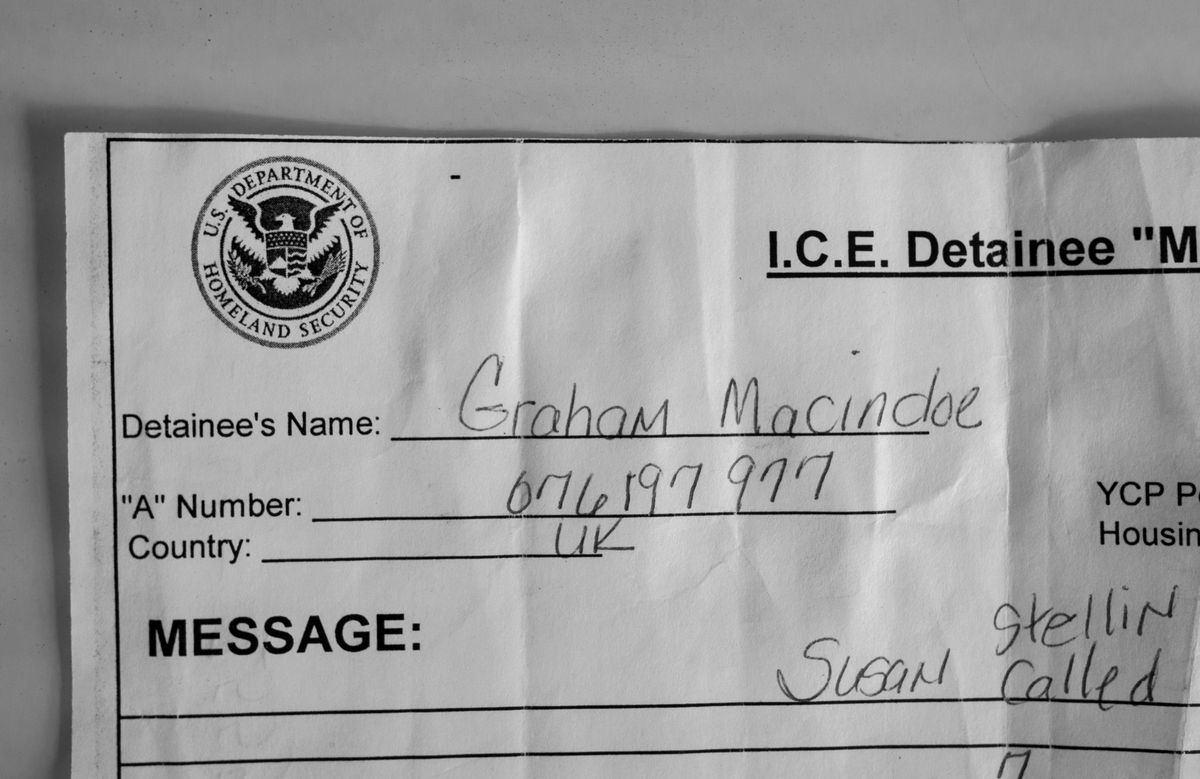 U.S. DEPARTMENT OF
HOMELAND SECURITY
I.C.E. Detainee "M
Detainee's Name: Graham Macindoe
"A" Number: 076197977
YCP P
Country: UK
Housin
MESSAGE:
Stellin
Susan Called